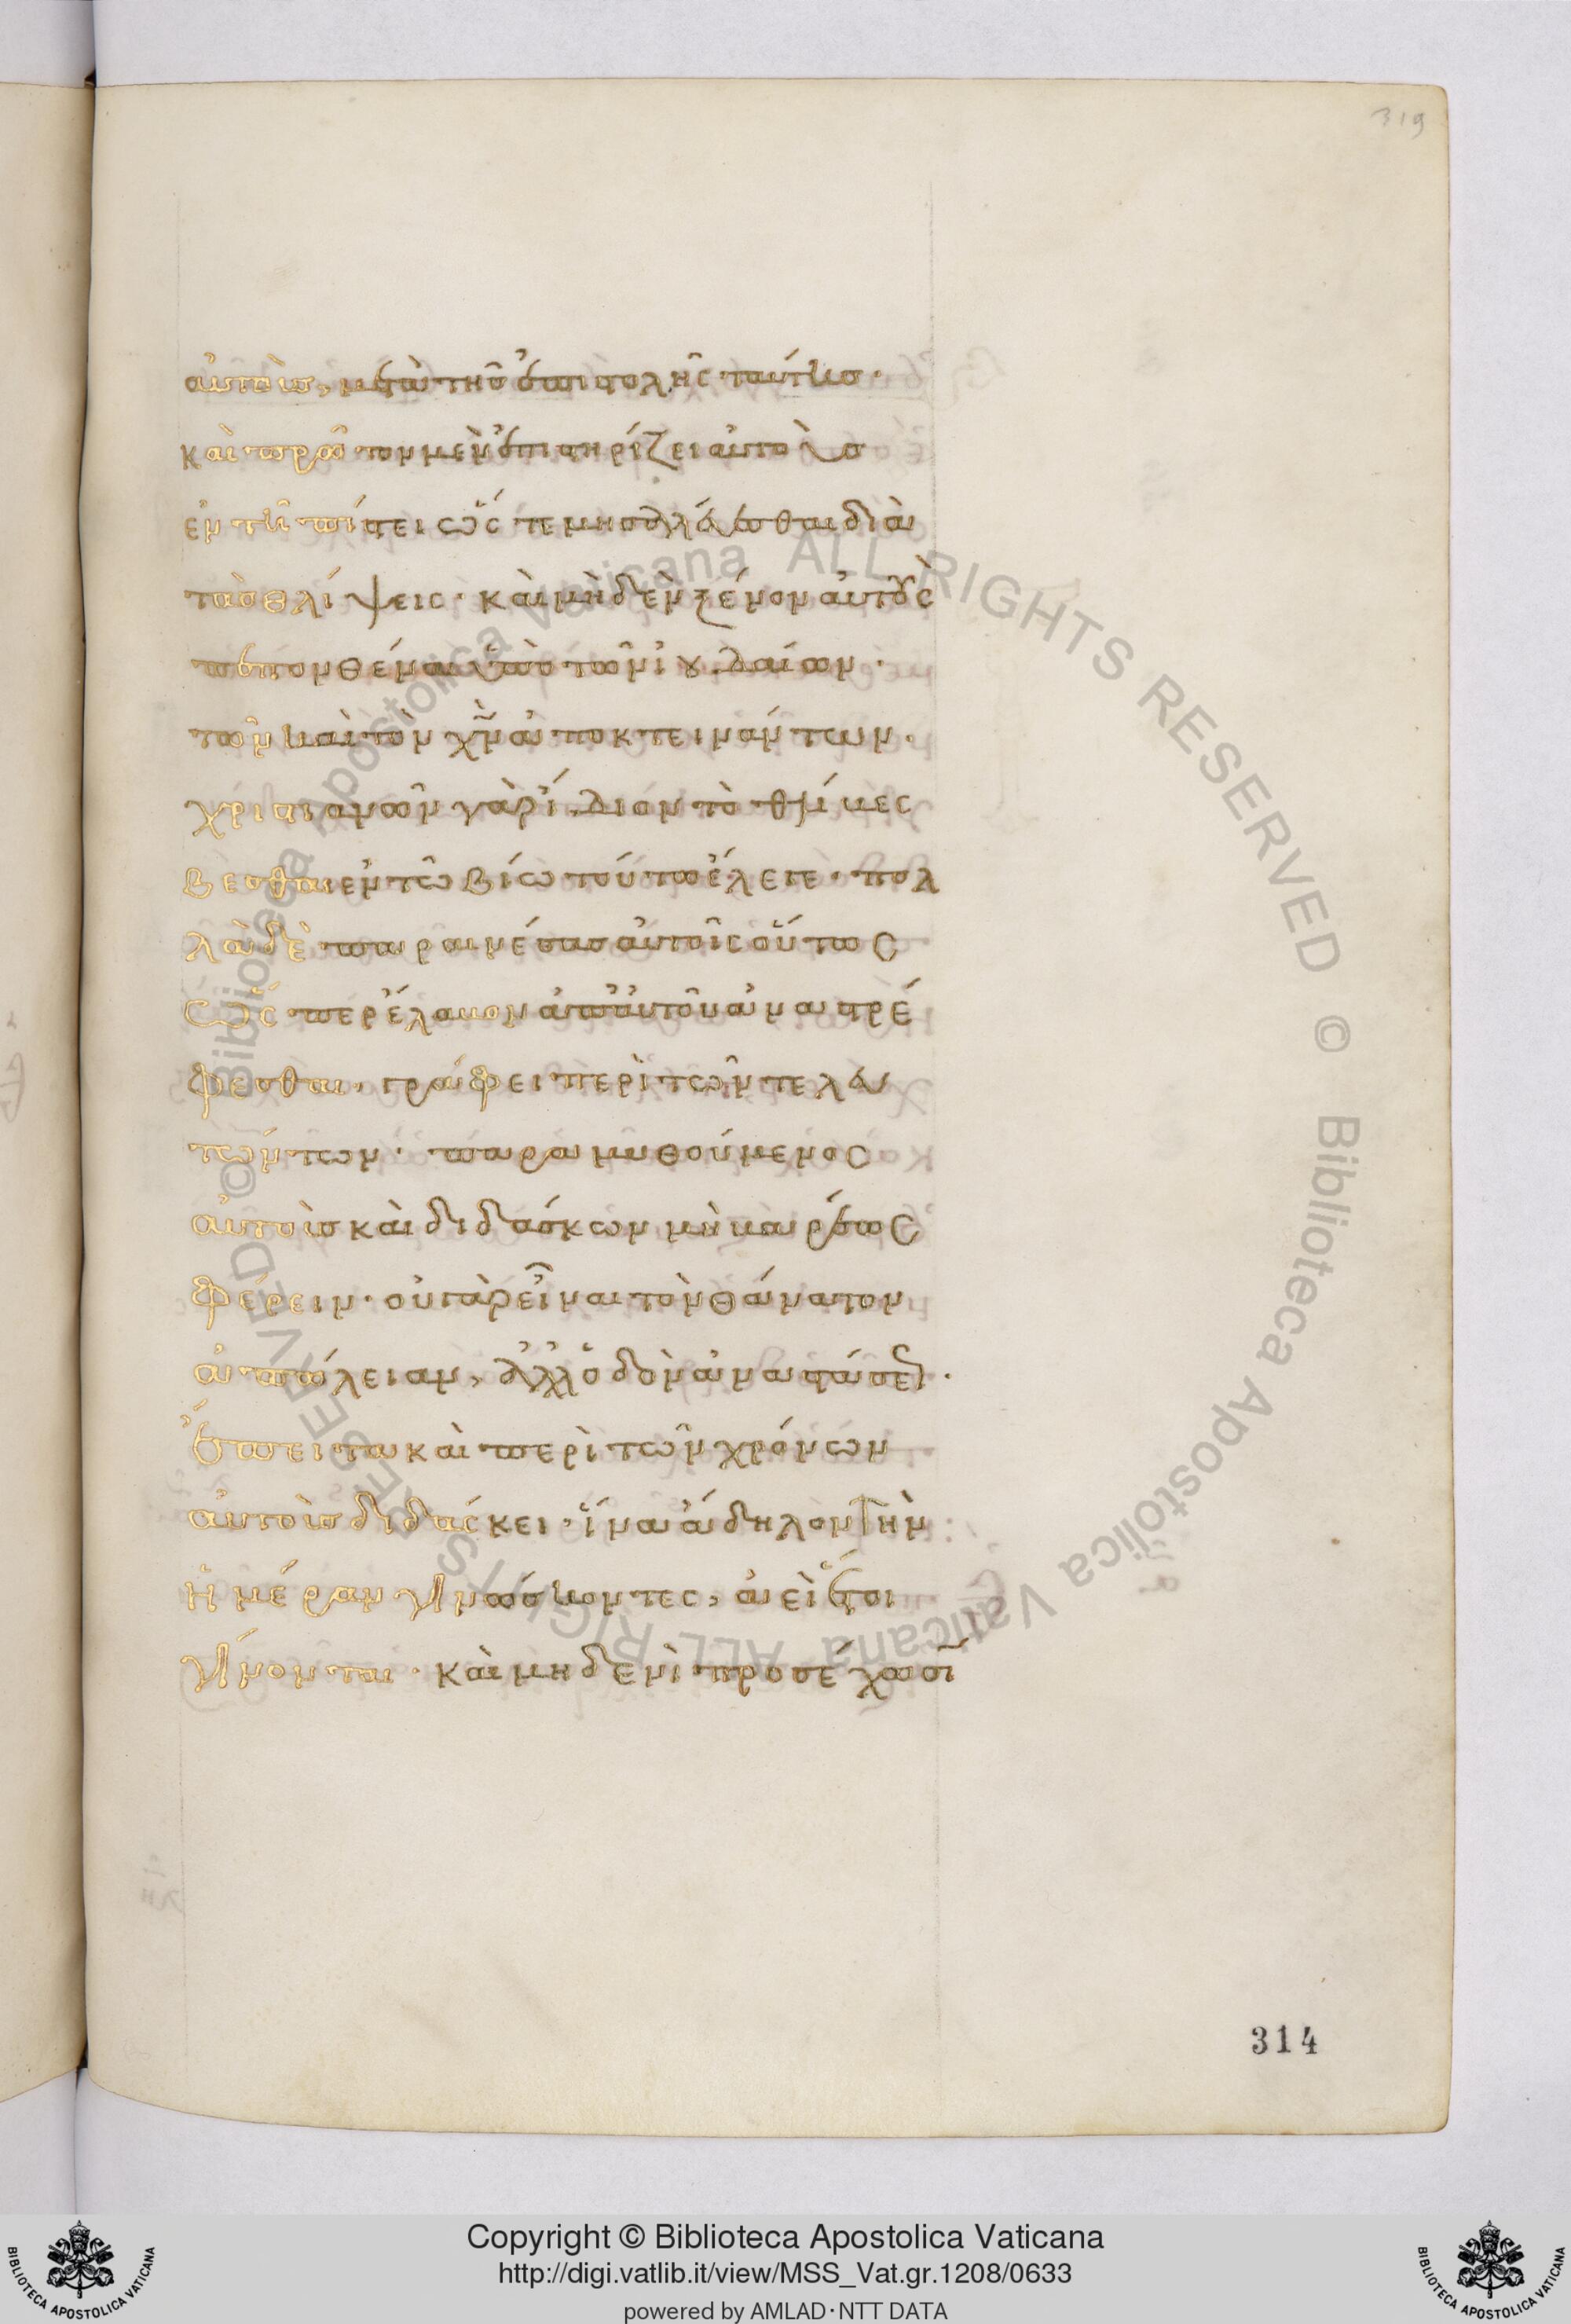 319
αὐτοὺς, μετὰ τῆς ἐπιστολῆς ταύτης·
καὶ πρῶτον μὲν ἐπιστηρίζει αὐτοὺς
ἐν τῇ πίστει ὥς τε μὴ σαλεύεσθαι διὰ
τὰς θλίψεις· καὶ μηδὲν ξένον αὐτοὺς
πεπονθέναι ὑπὸ τῶν ἰουδαίων·
τῶν καὶ τὸν χ̅ν̅ ἀποκτεινάντων·
χριστιανῶν γὰρ ἴδιον τὸ θλί
βεσθαι ἐν τῶ βίω τούτω ἔλεγε· πολ
λὰ δὲ παραινέσας αὐτοῖς οὕτως
ὥς περ ἔλαβον ἀπ' αὐτοῦ ἀναστρέ
φεσθαι, γράφει περὶ τῶν τελευ
τώντων· παραμυθούμενος
αὐτοὺς καὶ διδάσκων μὴ βαρέως
φέρειν· οὐ γὰρ εἶναι τὸν θάνατον
ἀπώλειαν, ἀλλ' ὁδὸν ἀναστάσεως·
ἔπειτα καὶ περὶ τῶν χρόνων
αὐτοὺς διδάσκει· ἵνα ἄδηλον τὴν
ἡμέραν γινώσκοντες, ἀεὶ ἕτοιμοι
γίνονται· καὶ μηδενὶ προσέχωσῑ
314
Biblioteca Apostolica Vaticana ALL RIGHTS RESERVED © Biblioteca Apostolica Vaticana ALL RIGHTS RESERVED ©
Copyright © Biblioteca Apostolica Vaticana
http://digi.vatlib.it/view/MSS_Vat.gr.1208/0633
powered by AMLAD·NTT DATA
BIBLIOTECA APOSTOLICA VATICANA
BIBLIOTECA APOSTOLICA VATICANA